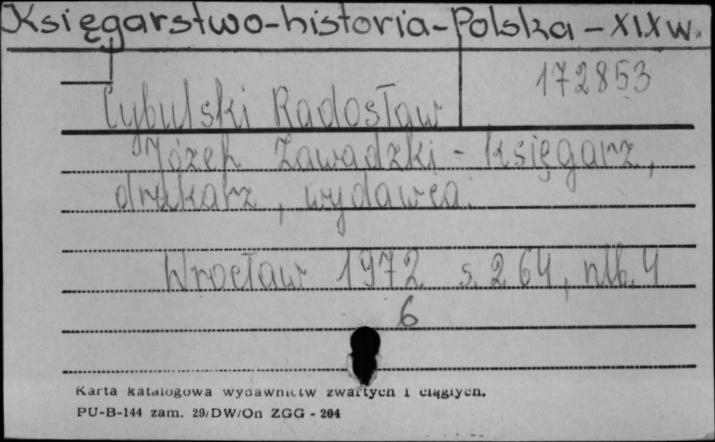 Księgarstwo-historia-Polska-XIXw.
172853
Cybulski Radosław
Józef Zawadzki - księgarz,
drukarz, wydawca.
Wrocław 1972 s. 264, nlb. 4
6
Karta katalogowa wydawnictw zwartych i ciągłych.
PU-B-144 zam. 29/DW/On ZGG - 204